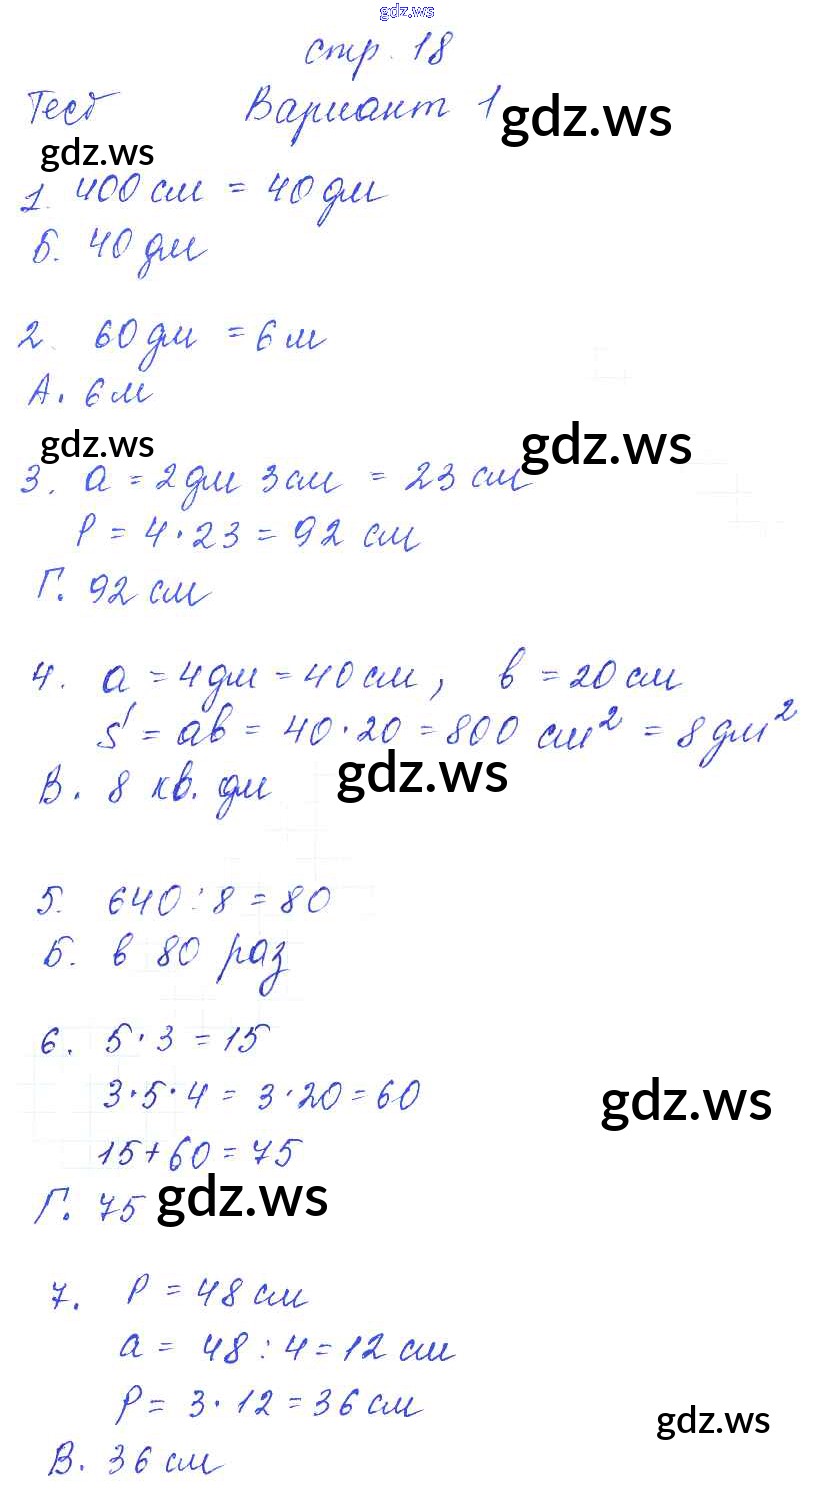 gdz.ws
стр. 18
Тест Вариант 1
gdz.ws
gdz.ws
1. 400 см = 40 дм
Б. 40 дм
2. 60 дм = 6 м
А. 6 м
gdz.ws
gdz.ws
3. a = 2 дм 3 см = 23 см
P = 4 · 23 = 92 см
Г. 92 см
4. a = 4 дм = 40 см, в = 20 см
S = ав = 40 · 20 = 800 см² = 8 дм²
В. 8 кв. дм
gdz.ws
5. 640 : 8 = 80
Б. в 80 раз
6. 5 · 3 = 15
3 · 5 · 4 = 3 · 20 = 60
gdz.ws
15 + 60 = 75
Г. 75
gdz.ws
7. P = 48 см
a = 48 : 4 = 12 см
P = 3 · 12 = 36 см
gdz.ws
В. 36 см